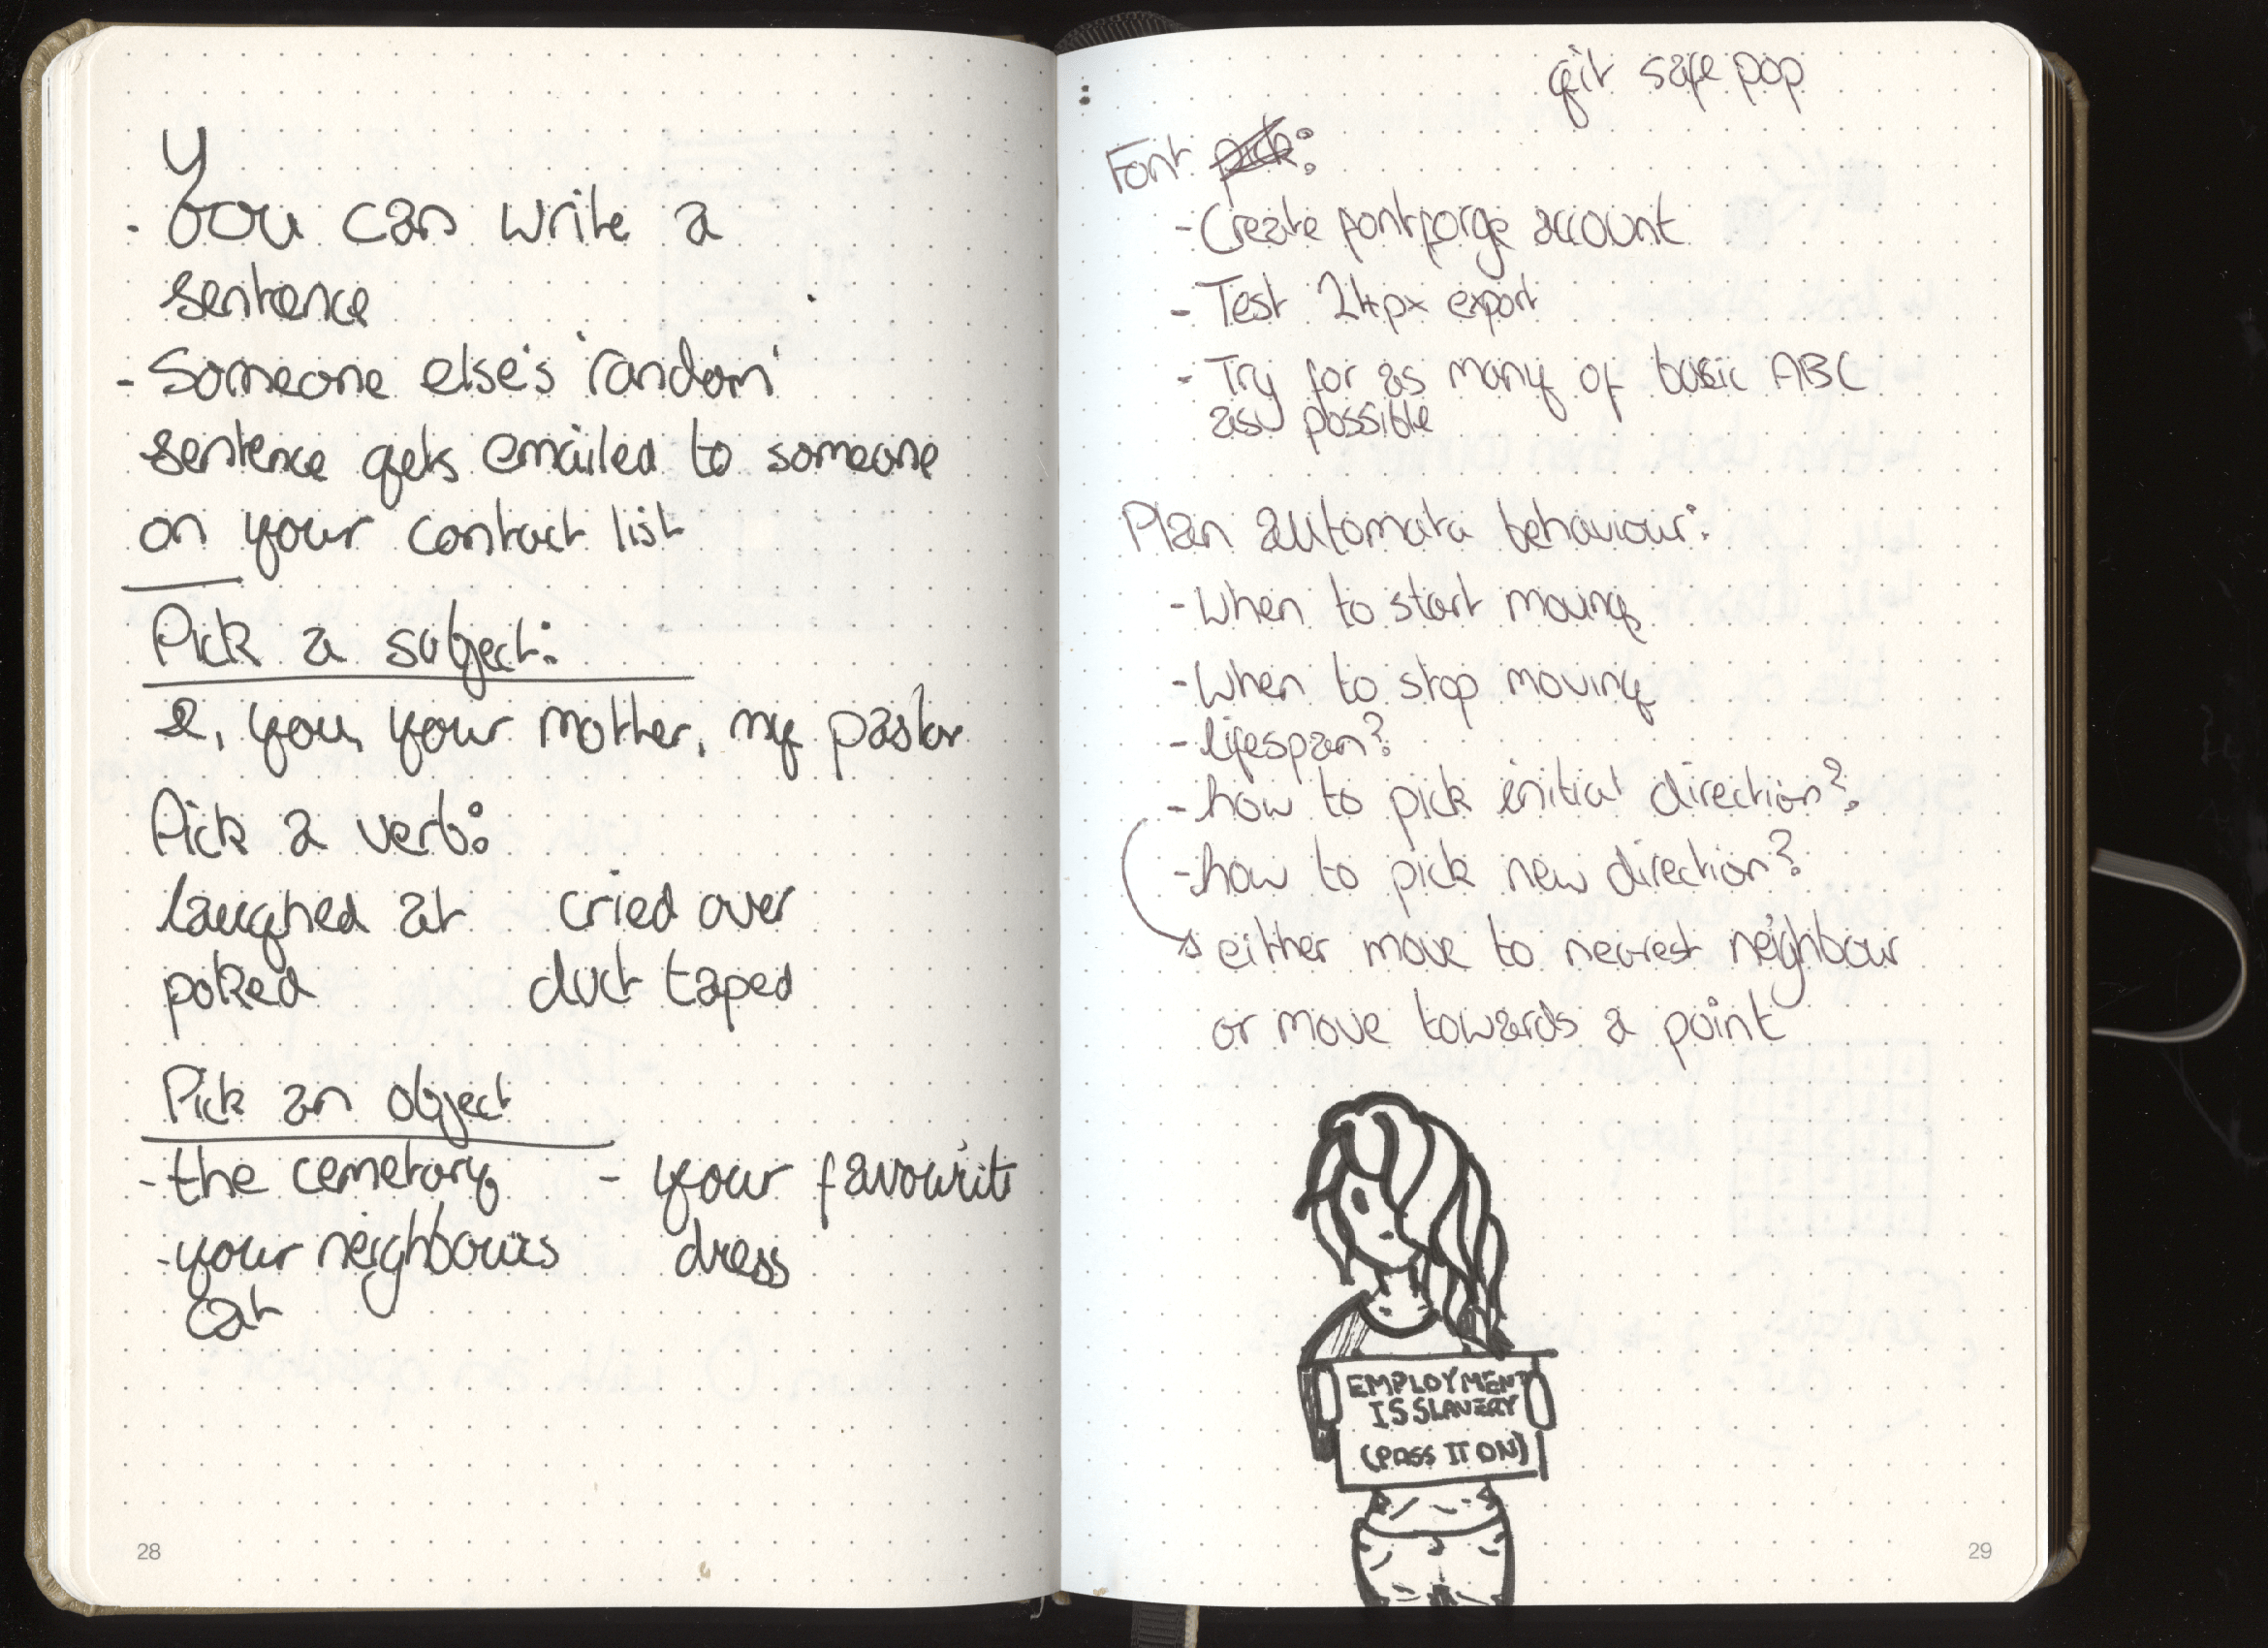 y
- You can write a
sentence
- Someone else's 'random'
sentence gets emailed to someone
on your contact list
Pick a subject:
I, you, your mother, my pastor
Pick a verb:
laughed at cried over
poked duct taped
Pick an object
- the cemetary - your favourite
- your neighbours dress
cat
28
git safe pop
Font pick:
- Create fontforge account
- Test 24px export
- Try for as many of basic ABC
as possible
Plan automata behaviour:
- When to start moving
- When to stop moving
- lifespan?
- how to pick initial direction?
- how to pick new direction?
either move to nearest neighbour
or move towards a point
EMPLOYMENT
IS SLAVERY
(PASS IT ON)
29